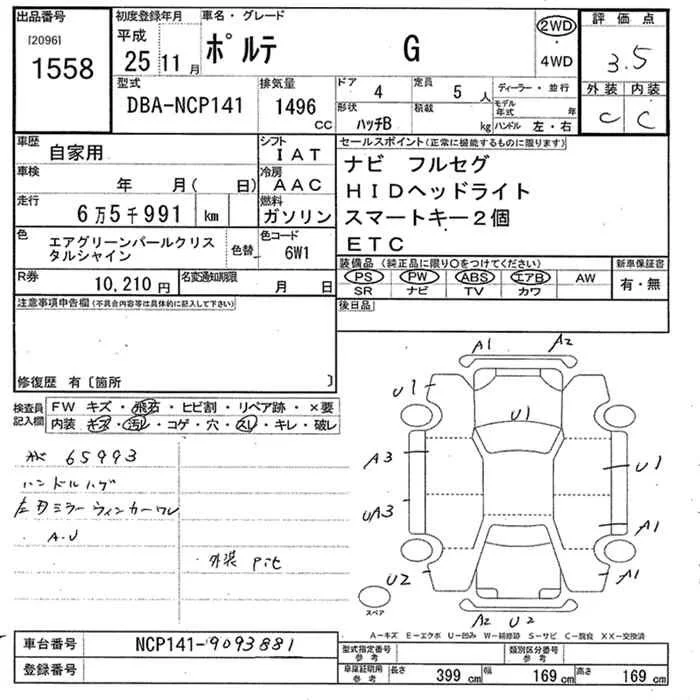 出品番号 初度登録年月 車名・グレード 2WD 評価点
[2096] 平成 ・
1558 25 11月 ポルテ G 4WD 3.5
型式 排気量 ドア 4 定員 5人 ディーラー・並行 外装 内装
DBA-NCP141 1496 cc 形状 ハッチB 積載 kg モデル年式 年 C C
ハンドル 左・右
車歴 自家用 シフト IAT セールスポイント(正常に機能するものに限ります)
車検 年 月( 日) 冷房 AAC ナビ フルセグ
走行 6万5千991 km 燃料 ガソリン HIDヘッドライト
色 エアグリーンパールクリスタルシャイン 色替 色コード 6W1 スマートキー2個
ETC
R券 10,210円 名変通知期限 月 日 装備品(純正品に限り○をつけてください) 新車保証書
PS PW ABS エアB AW 有・無
SR ナビ TV カワ
注意事項申告欄(不具合内容等は具体的に記入して下さい) 後日品
修復歴 有〔箇所 〕
検査員記入欄 FW キズ・飛石・ヒビ割・リペア跡・×要
内装 キズ・汚レ・コゲ・穴・スレ・キレ・破レ
A1 A2
U1
U1
65993
A3 U1
ハンドルハゲ
左右ミラーウィンカーワレ
UA3
A.U A1
外装 Pit
U2 A1
スペア
A2 U2
A−キズ E−エクボ U−凹み W−補修跡 S−サビ C−腐食 XX−交換済
車台番号 NCP141-9093881 型式指定番号 参考 類別区分番号 参考
登録番号 車庫証明用 参考 長さ 399 cm 幅 169 cm 高さ 169 cm